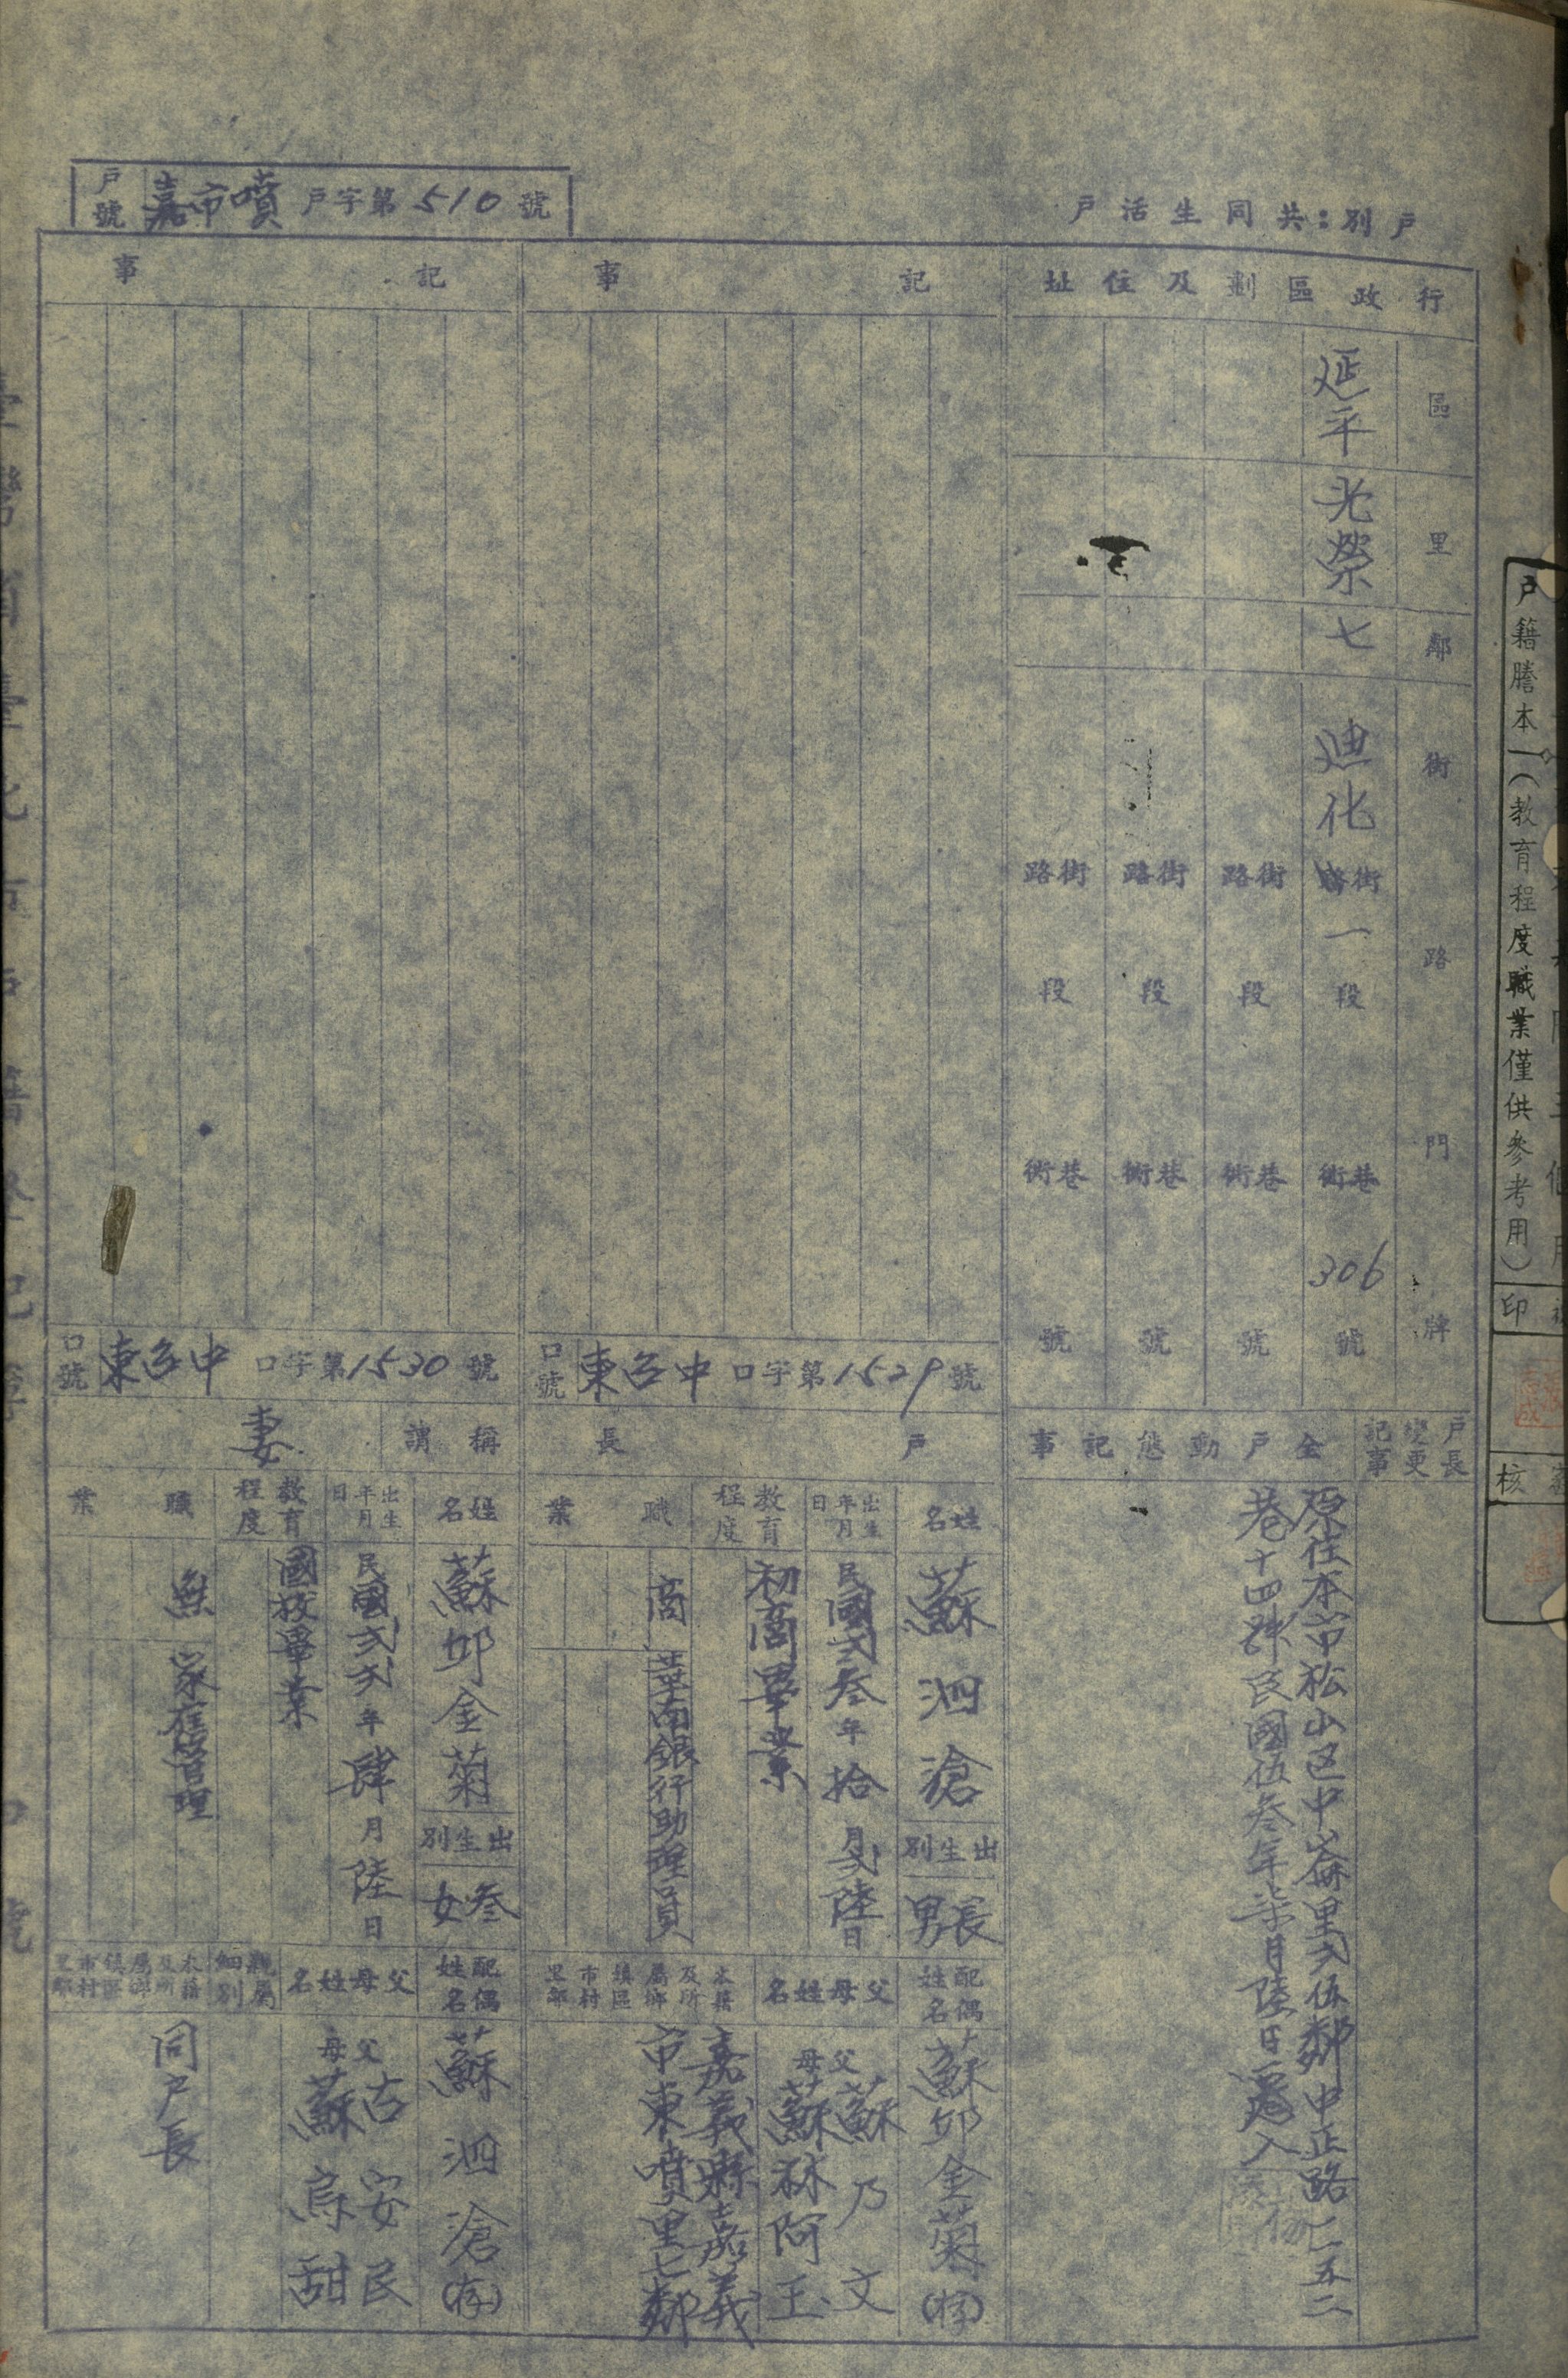 戶籍謄本(教育程度職業僅供參考用)
印
核
戶別：共同生活戶
戶號 嘉市噴戶字第510號
行政區劃及住址
區 里 鄰 街路門牌
延平 光榮 七 迪化街一段 巷衖 306號
街路 段 巷衖 號
街路 段 巷衖 號
街路 段 巷衖 號
戶長變更記事
全戶動態記事
原住本市松山区中崙里弍伍鄰中正路一五二
巷十四號民國伍叁年柒月陸日遷入
記事
口號 東名中口字第1529號
戶長
姓名 蘇泗滄
出生別 長男
出生年月日 民國弍叁年拾月弍陸日
教育程度 初商畢業
職業 商 華南銀行助理員
配偶姓名 蘇邱金菊(存)
父母姓名 父 蘇乃文
母 蘇林阿玉
本籍及所屬鄉鎮區市村里鄰
嘉義縣嘉義
市東噴里七鄰
記事
口號 東名中口字第1530號
稱謂 妻
姓名 蘇邱金菊
出生別 叁女
出生年月日 民國弍弍年肆月陸日
教育程度 國校畢業
職業 無 家庭管理
配偶姓名 蘇泗滄(存)
父母姓名 父 古安民
母 蘇烏甜
親屬細別
本籍及所屬鄉鎮區市村里鄰
同戶長